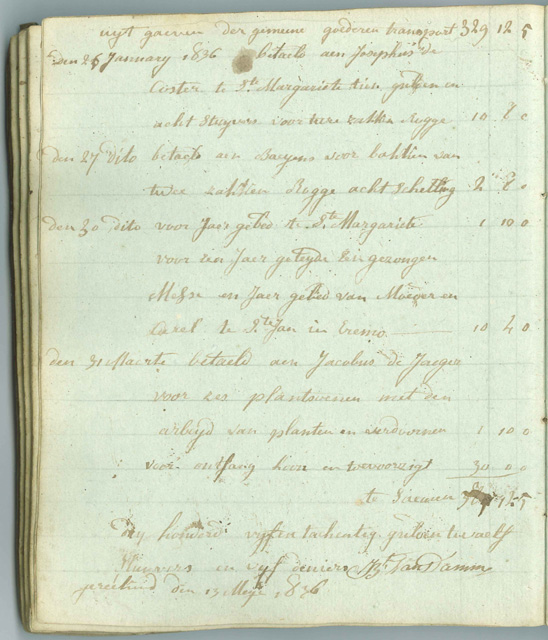 uyt gaeven der gemeene goederen transport 329 12 5
den 26 January 1836 betaelt aen Josephus de
Coster te Ste Margariete tien gulden en
acht Stuyvers voor twee zakken Rogge 10 8 0
den 27 dito betaelt aen Baeyens voor bakken van
twee zakken Rogge acht Schelling 2 8 0
den 30 dito voor Jaer gebed te Ste Margariete 1 10 0
voor een Jaer getyde Een gezongen
Messe en Jaer gebed van Moeder en
Carel te St Jan in Eremo 10 4 0
den 31 Maerte betaeld aen Jacobus de Jaeger
voor zes plantsoenen met den
arbeyd van planten en 1 10 0
voor ontfang en 30 0 0
te saemen 12 5
Dry honderd vyf en tachentig gulden twaelf
Stuyvers en vyf deniers Van Damme
den 13 Meye 1836